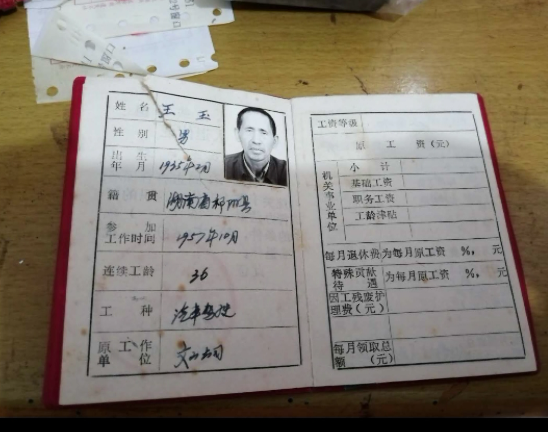 姓名 王玉
性别 男
出生
年月 1935年2月
籍贯 湖南省
参加
工作时间 1957年10月
连续工龄 36
工种 汽车驾驶
原工作
单位
工资等级
原工资(元)
机关事业单位
小计
基础工资
职务工资
工龄津贴
每月退休费为每月原工资 %, 元
特殊贡献
待遇 为每月原工资 %, 元
因工残废护
理费(元)
每月领取总
额(元)